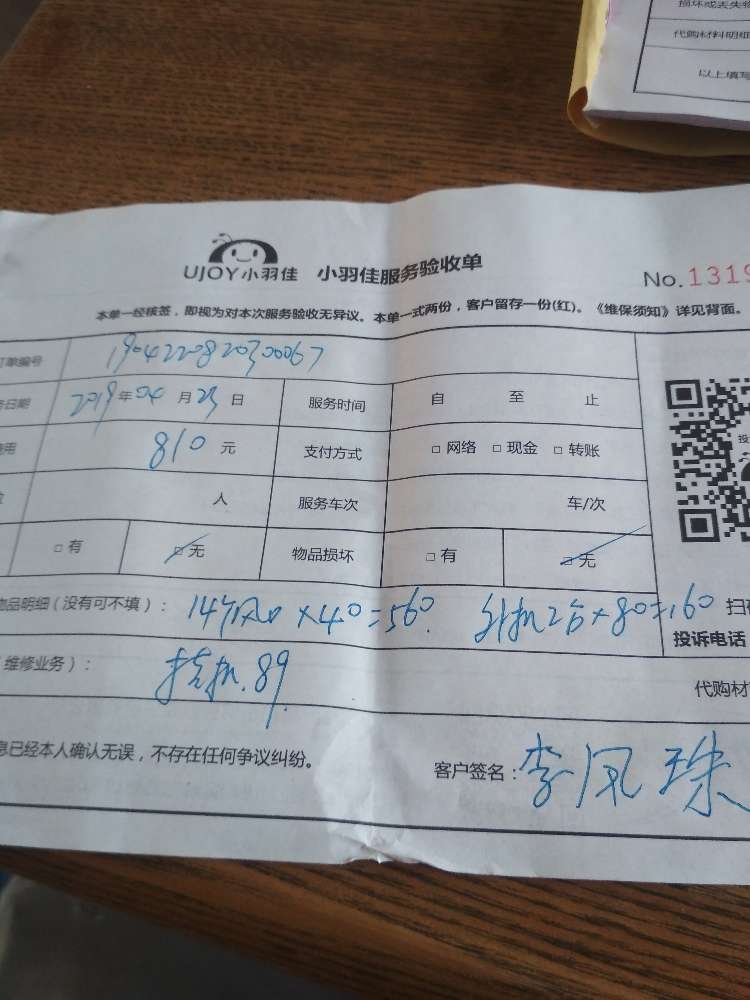 损坏或丢失物
代购材料明细
以上填写
UJOY小羽佳 小羽佳服务验收单
No.1319
本单一经核签，即视为对本次服务验收无异议。本单一式两份，客户留存一份(红)。《维保须知》详见背面。
订单编号 1904220820300067
务日期 2019年04月23日 服务时间 自 至 止
费用 810元 支付方式 □ 网络 □ 现金 □ 转账
人 服务车次 车/次
□ 有 □ 无 物品损坏 □ 有 □ 无
物品明细（没有可不填）： 14个风口×40=560. 外机2台×80=160 扫
投诉电话
（维修业务）： 挂机.89.
代购材
息已经本人确认无误，不存在任何争议纠纷。 客户签名：李凤珠